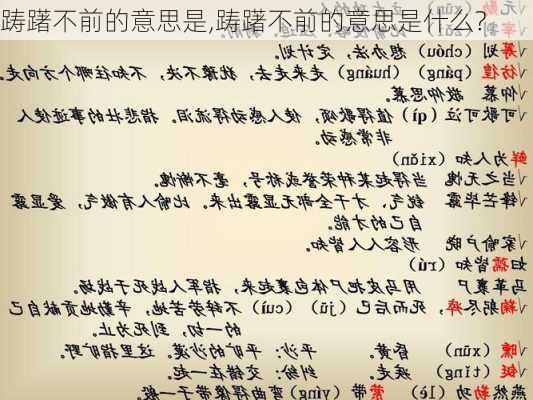 踌躇不前的意思是,踌躇不前的意思是什么?
√筹划（chóu）想办法，定计划。
√彷徨（páng）（huáng）走来走去，犹豫不决，不知往哪个方向走
√仰慕 敬仰思慕。
√可歌可泣（qì）值得歌颂，使人感动得流泪。指悲壮的事迹使人
非常感动。
√鲜为人知（xiǎn）
√当之无愧 当得起某种荣誉或称号，毫不惭愧。
√锋芒毕露 锐气、才干全部无显露出来。比喻人有傲气，爱显露
自己的才能。
√家喻户晓 形容人人皆知。
妇孺皆知（rú）
马革裹尸 用马皮把尸体包裹起来，指军人战死于战场。
√鞠躬尽瘁，死而后已（jū）（cuì）不辞劳苦地，辛勤地贡献自己
的一切，到死为止。
√曛（xūn） 昏黄。 平沙：平旷的沙漠。这里指旷野。
√铤（tǐng）疾走。 纠纷：交错在一起。
燕然勒功（lè）萦带（yíng）弯曲得像带子一般